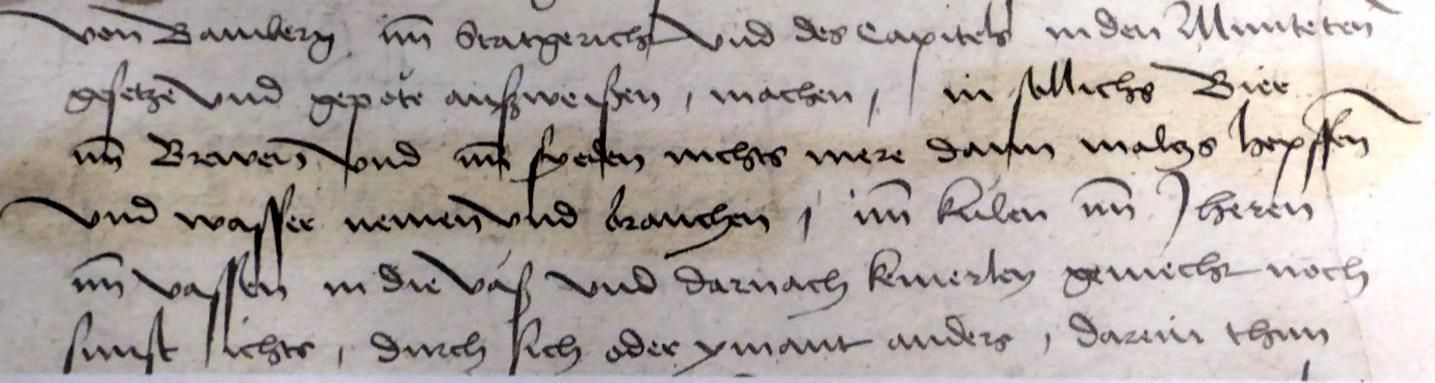 von Bamberg im Statgericht und des Capitels in den Munteten
gesetze und gepote außweisen, machen, in sollichs Bier
im Brewen und im syeden nichts mere dann maltz hopffen
und wasser nemen und brauchen, im kulen im heren
im vassen in die vas und darnach keinerley gemecht noch
sunst ichts, durch sich oder ymant anders, darein thun